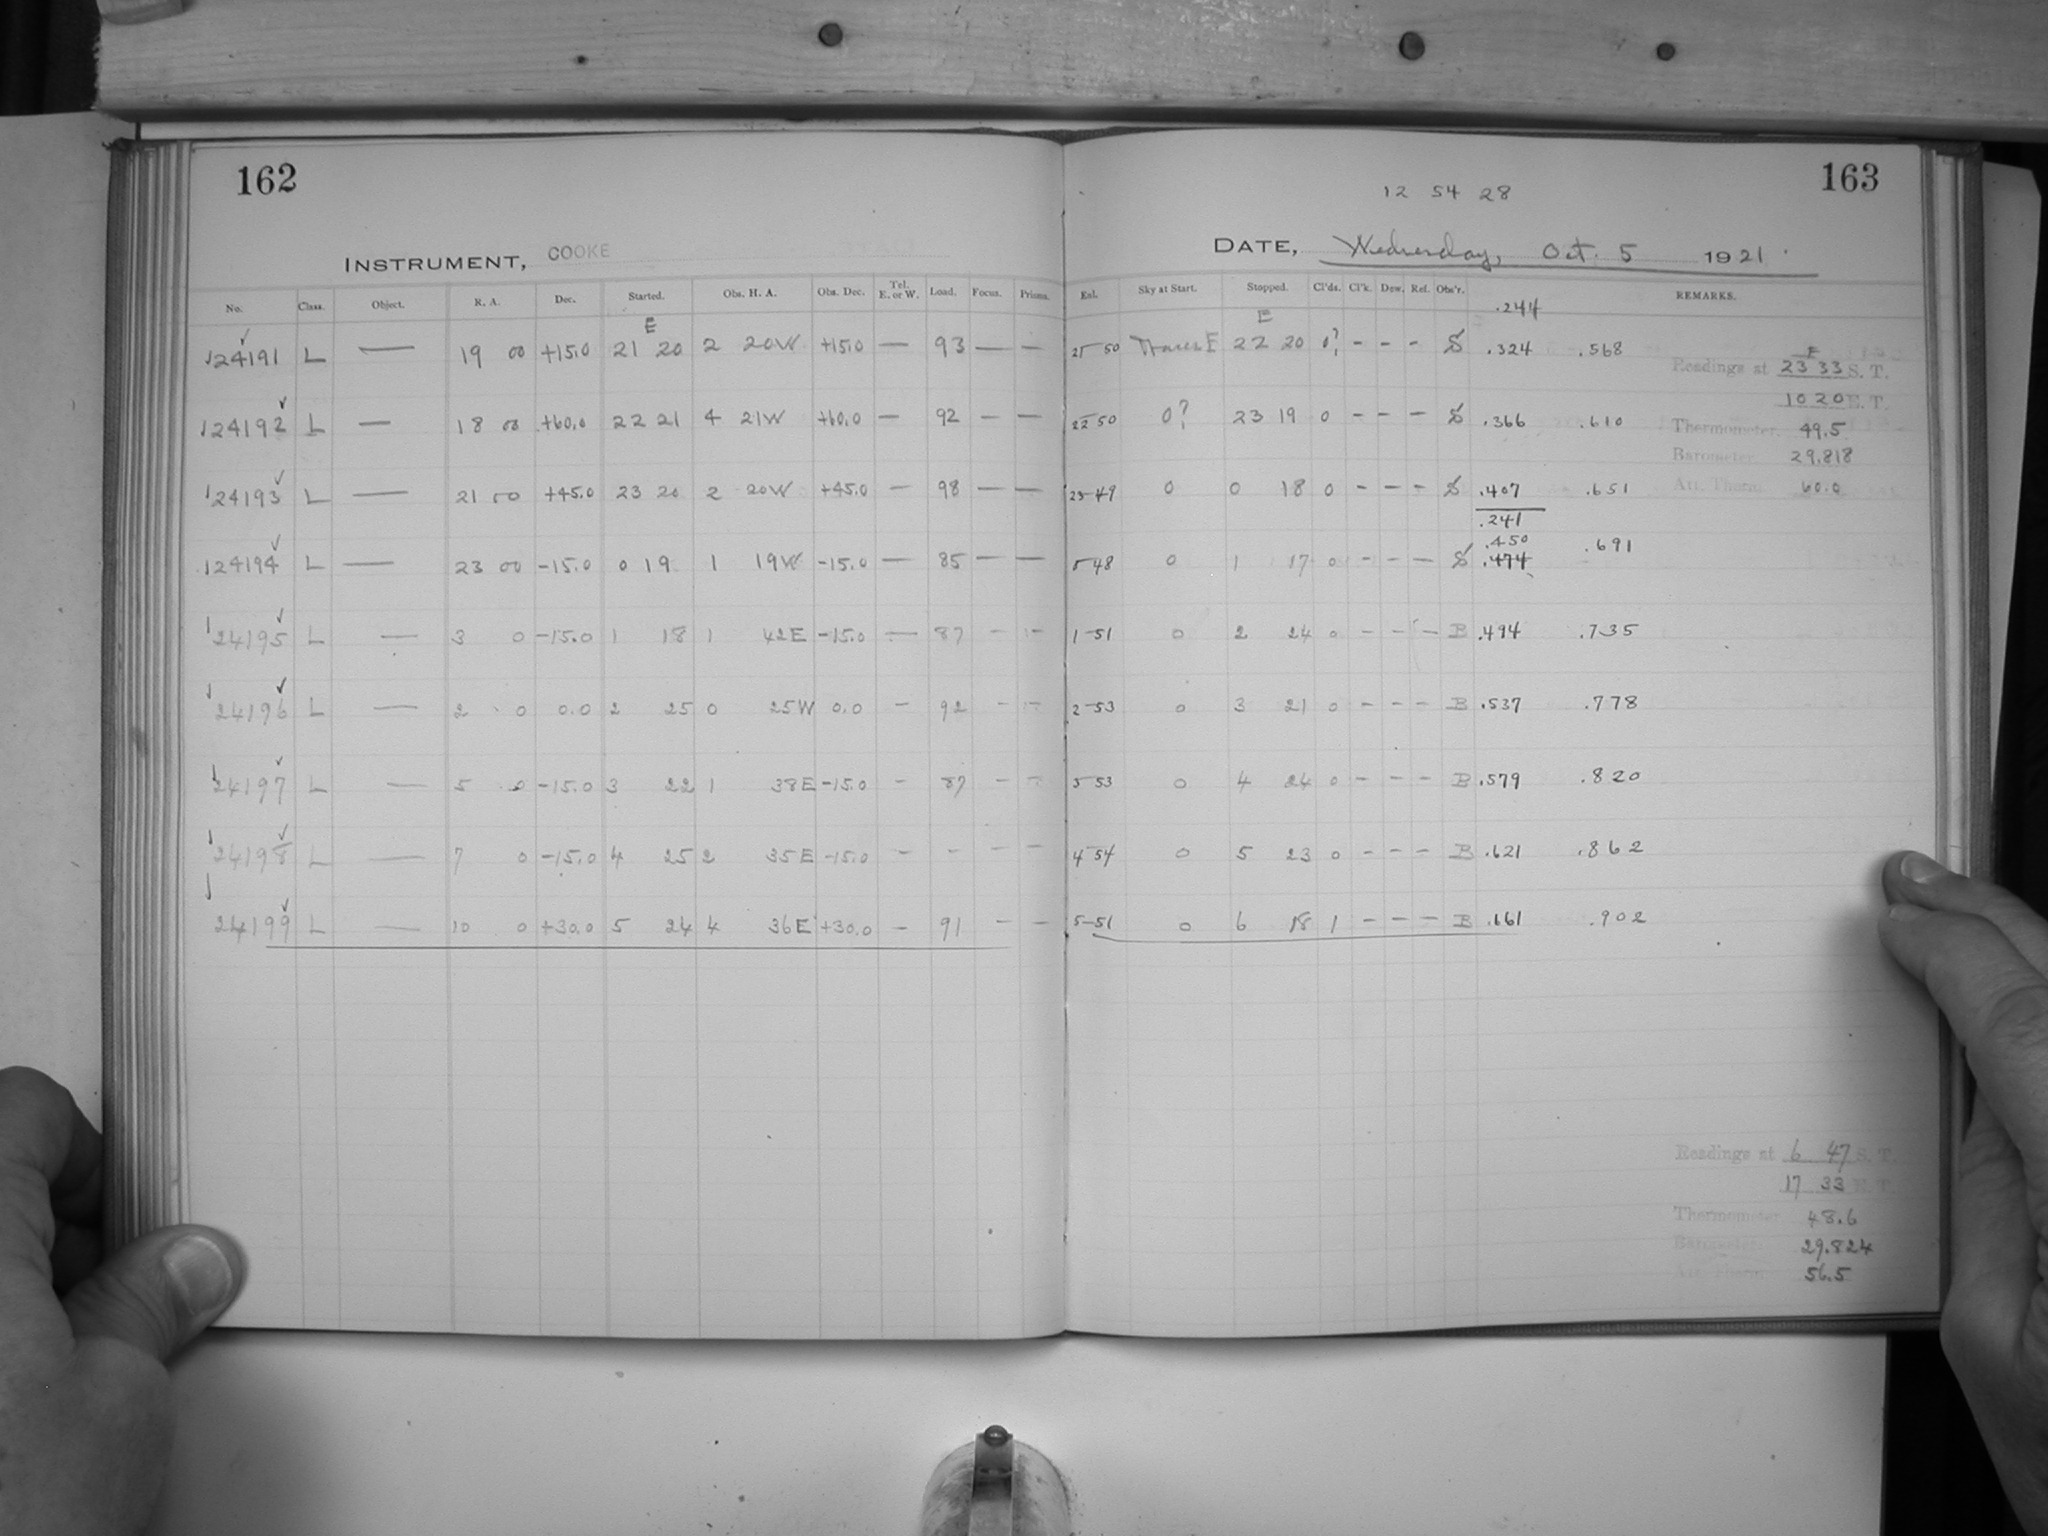 162
INSTRUMENT, COOKE
No. Class. Object. R. A. Dec. Started. Obs. H. A. Obs. Dec. Tel. E. or W. Load. Focus. Prisms.
E
24191 L — 19 00 +15.0 21 20 2 20W +15.0 — 93 — —
24192 L — 18 00 +60.0 22 21 4 21W +60.0 — 92 — —
24193 L — 21 00 +45.0 23 20 2 20W +45.0 — 98 — —
24194 L — 23 00 -15.0 0 19 1 19W -15.0 — 85 — —
24195 L — 3 0 -15.0 1 18 1 42E -15.0 — 87 - -
24196 L — 2 0 0.0 2 25 0 25W 0.0 - 92 - -
24197 L — 5 0 -15.0 3 22 1 38E -15.0 - 87 - -
24198 L — 7 0 -15.0 4 25 2 35E -15.0 - - - -
24199 L — 10 0 +30.0 5 24 4 36E +30.0 - 91 - -
163
12 54 28
DATE, Wednesday, Oct. 5 1921.
Sky at Start. Stopped. Cl'ds. Cl'k. Dew. Rel. Obs'r. REMARKS.
.244
E
21 50 Traces E 22 20 0? - - - S .324 .568
22 50 0? 23 19 0 - - - S .366 .610
23 49 0 0 18 0 - - - S .407 .651
.241
.450
0 48 0 1 17 0 - - - S .474 .691
1-51 0 2 24 0 - - - B .494 .735
2-53 0 3 21 0 - - - B .537 .778
3 53 0 4 24 0 - - - B .579 .820
4-54 0 5 23 0 - - - B .621 .862
5-51 0 6 18 1 - - - B .661 .902
Readings at 23 33 S. T.
10 20 E. T.
Thermometer 49.5
Barometer 29.818
Att. Therm. 60.0
Readings at 6 47 S. T.
17 33 E. T.
Thermometer 48.6
Barometer 29.824
Att. Therm. 56.5